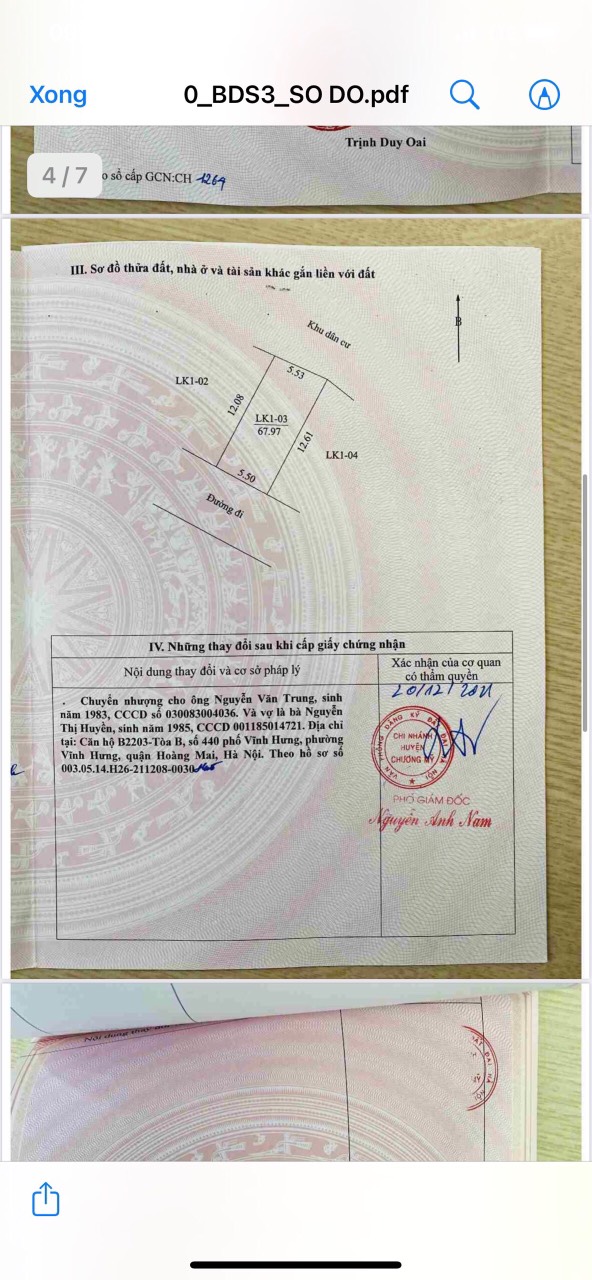 Xong
0_BDS3_SO DO.pdf
Trịnh Duy Oai
4 / 7
o sổ cấp GCN:CH 1264
III. Sơ đồ thửa đất, nhà ở và tài sản khác gắn liền với đất
Khu dân cư
B
5.53
LK1-02
12.08
LK1-03
67.97
12.61
LK1-04
5.50
Đường đi
IV. Những thay đổi sau khi cấp giấy chứng nhận
Nội dung thay đổi và cơ sở pháp lý
Xác nhận của cơ quan
có thẩm quyền
Chuyển nhượng cho ông Nguyễn Văn Trung, sinh
năm 1983, CCCD số 030083004036. Và vợ là bà Nguyễn
Thị Huyền, sinh năm 1985, CCCD 001185014721. Địa chỉ
tại: Căn hộ B2203-Tòa B, số 440 phố Vĩnh Hưng, phường
Vĩnh Hưng, quận Hoàng Mai, Hà Nội. Theo hồ sơ số
003.05.14.H26-211208-0030
20/12/2021
VĂN PHÒNG ĐĂNG KÝ ĐẤT ĐAI HÀ NỘI
CHI NHÁNH
HUYỆN
CHƯƠNG MỸ
PHÓ GIÁM ĐỐC
Nguyễn Anh Nam
Nội dung thay
ĐẤT ĐAI HÀ NỘI